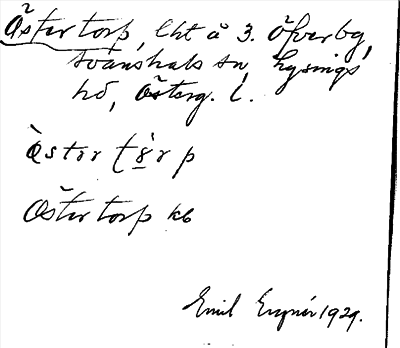 Östertorp, lht å 3. Öfverby,
Svanshals sn, Lysings
hd, Österg. l.
òster tɣ̀r p
Östertorp kb
Emil 1929.